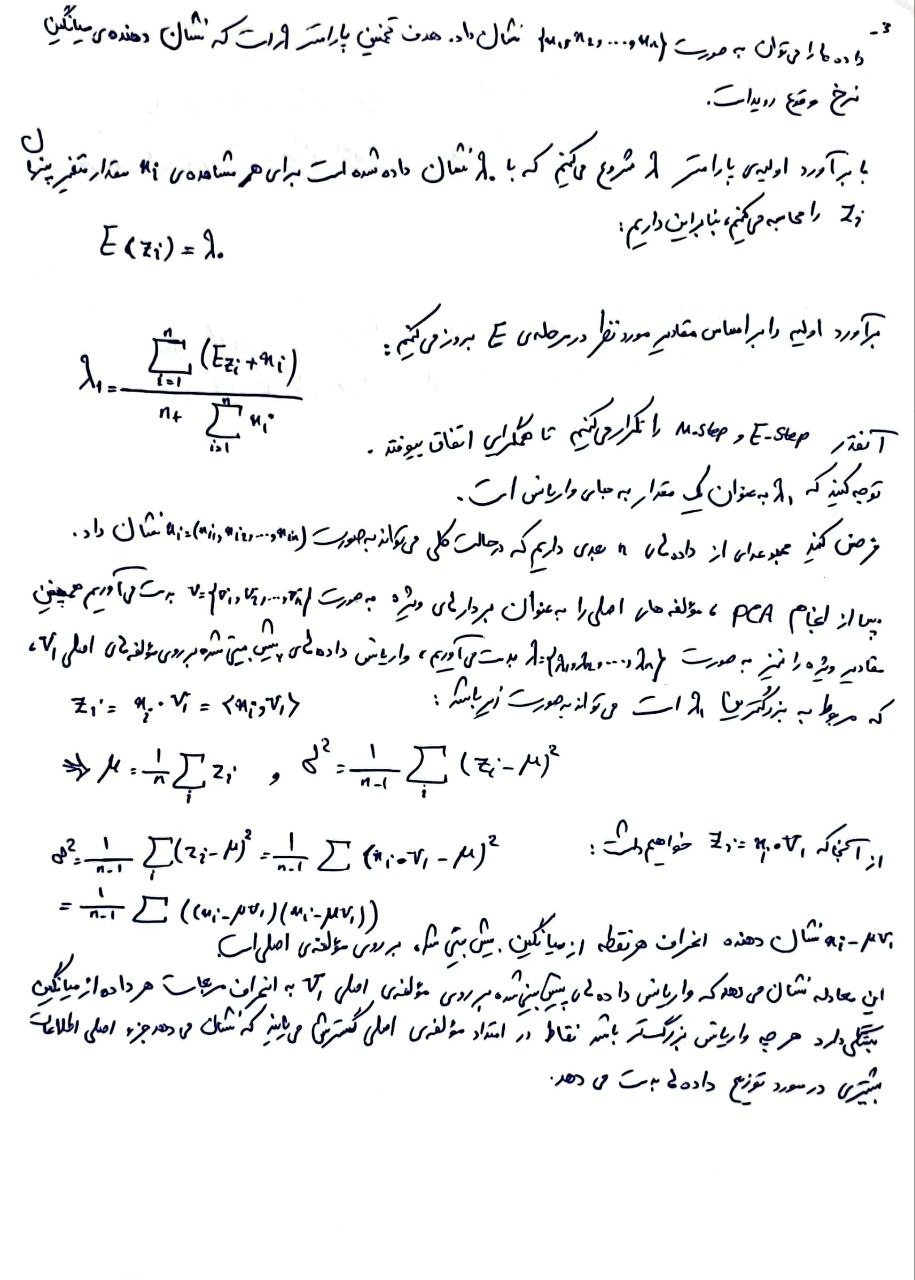 3- داده ها را می توان به صورت {x₁, x₂, ..., xₙ} نشان داد. هدف تخمین پارامتر λ است که نشان دهنده ی میانگین
نرخ وقوع رویداد است.
با برآورد اولیه ی پارامتر λ شروع می کنیم که با λ₀ نشان داده شده است برای هر مشاهده ی xᵢ مقدار متغیر پنهان
zᵢ را محاسبه می کنیم، بنابراین داریم:
E(zᵢ) = λ₀
برآورد اولیه را براساس مقادیر مورد نظر در مرحله ی E بروز می کنیم:
λ₁ = Σᵢ₌₁ⁿ (Ezᵢ + xᵢ) / (n + Σᵢ₌₁ⁿ xᵢ)
آنقدر E-step و M-step را تکرار می کنیم تا همگرایی اتفاق بیوفتد.
توجه کنید که λ₁ به عنوان یک مقدار به جای واریانس است.
فرض کنید مجموعه ای از داده های n بعدی داریم که در حالت کلی می تواند به صورت xᵢ=(xᵢ₁, xᵢ₂, ..., xᵢₙ) نشان داد.
پس از انجام PCA، مؤلفه های اصلی را به عنوان بردارهای ویژه به صورت v={v₁, v₂, ..., vₙ} بدست می آوریم همچنین
مقادیر ویژه را نیز به صورت λ={λ₁, λ₂, ..., λₙ} بدست می آوریم، واریانس داده های پیش بینی شده بر روی مؤلفه های اصلی v₁،
که مربوط به بزرگترین λ₁ است می تواند به صورت زیر باشد:
zᵢ = xᵢ · v₁ = <xᵢ, v₁>
⇒ μ = 1/n Σᵢ zᵢ , σ² = 1/(n-1) Σᵢ (zᵢ - μ)²
از آنجا که zᵢ = xᵢ · v₁ خواهیم داشت:
σ² = 1/(n-1) Σᵢ (zᵢ - μ)² = 1/(n-1) Σ (xᵢ · v₁ - μ)²
= 1/(n-1) Σ ((xᵢ - μv₁)(xᵢ - μv₁))
xᵢ - μv₁ نشان دهنده انحراف هر نقطه از میانگین پیش بینی شده بر روی مؤلفه ی اصلی است
این معادله نشان می دهد که واریانس داده های پیش بینی شده بر روی مؤلفه ی اصلی v₁ به انحراف مربعات هر داده از میانگین
بستگی دارد هر چه واریانس بزرگتر باشد نقاط در امتداد مؤلفه ی اصلی گسترش می یابند که نشان می دهد جزء اصلی اطلاعات
بیشتری در مورد توزیع داده ها بدست می دهد.